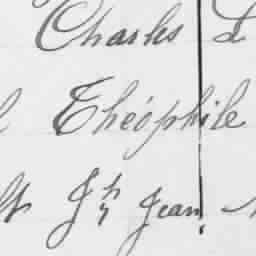 Charles L
Théophile
Jh Jean